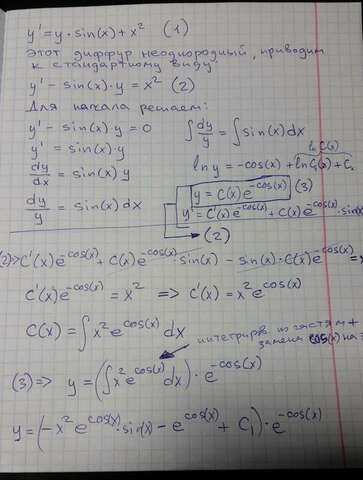 y' = y · sin(x) + x² (1)
этот диффур неоднородный, приводим
к стандартному виду
y' − sin(x)·y = x² (2)
Для начала решаем:
y' − sin(x)·y = 0
y' = sin(x)·y
dy/dx = sin(x) y
dy/y = sin(x) dx
∫ dy/y = ∫ sin(x) dx
ln C(x)
ln y = −cos(x) + ln C₁(x) + C₂
y = C(x) e^(−cos(x)) (3)
y' = C'(x) e^(−cos(x)) + C(x) e^(−cos(x)) · sin(x)
(2)
(2)=> C'(x) e^(−cos(x)) + C(x) e^(−cos(x)) · sin(x) − sin(x)·C(x) e^(−cos(x)) =
C'(x) e^(−cos(x)) = x² => C'(x) = x² e^(cos(x))
C(x) = ∫ x² e^(cos(x)) dx
интегрирв. по частям +
замена cos(x) на
(3) => y = (∫ x² e^(cos(x)) dx) · e^(−cos(x))
y = (−x² e^(cos(x)) · sin(x) − e^(cos(x)) + C₁) · e^(−cos(x))